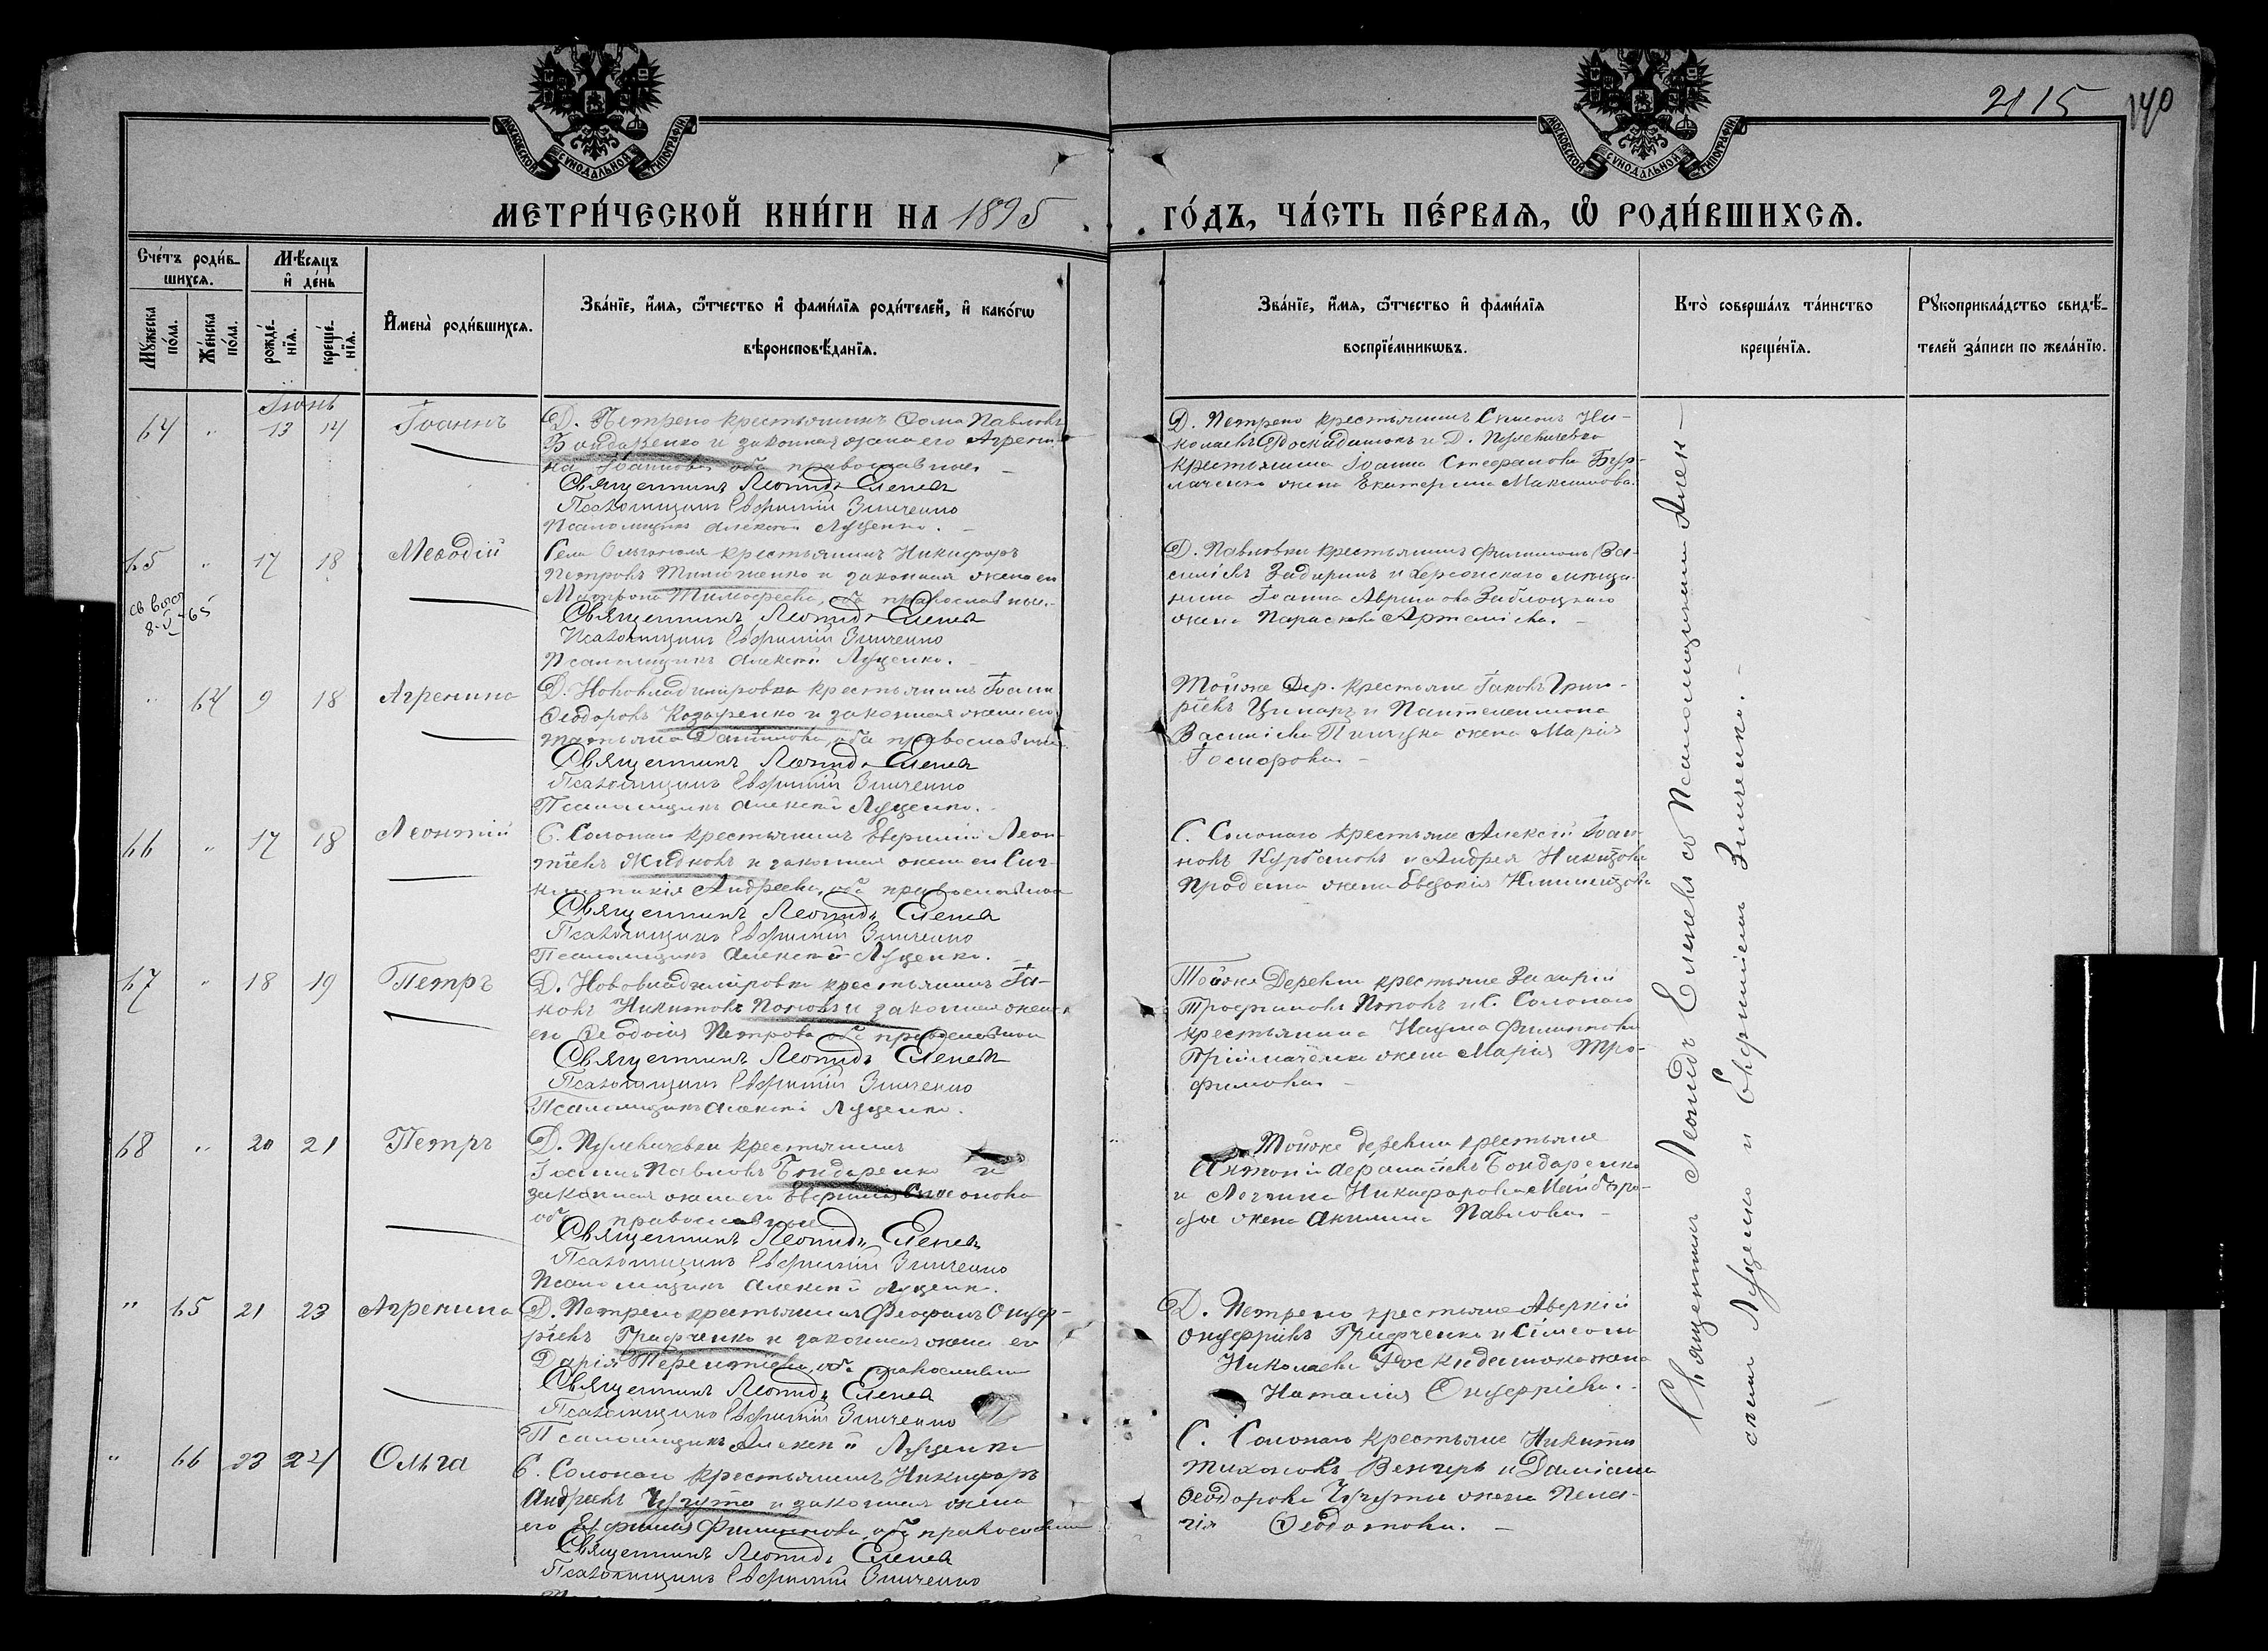 2115
140
МОСКОВСКОЙ СѴНОДАЛЬНОЙ ТИПОГРАФІИ
МОСКОВСКОЙ СѴНОДАЛЬНОЙ ТИПОГРАФІИ
МЕТРИ́ЧЕСКОЙ КНИ́ГИ НА 1895
ГО́ДЪ, ЧА́СТЬ ПЕ́РВАѦ, Ѽ РОДИ́ВШИХСѦ.
Сче́тъ роди́в-
шихсѧ.
Мꙋ́жеска по́ла.
Же́нска по́ла.
Мѣ́сѧцъ
и҆ де́нь
рожде́-
нїѧ.
креще́-
нїѧ.
И҆мена̀ роди́вшихсѧ.
Зва́нїе, и҆́мѧ, ѻ҆́тчество и҆ фами́лїѧ роди́телей, и҆ како́гѡ
вѣроисповѣ́данїѧ.
Зва́нїе, и҆́мѧ, ѻ҆́тчество и҆ фами́лїѧ
воспрїе́мникѡвъ.
Кто̀ соверша́лъ та́инство
креще́нїѧ.
Рꙋкоприкла́дство свидѣ́-
телей за́писи по жела́нїю.
Іюнь
64 " 13 14 Іоаннъ
Д. Петрено крестьянинъ Ѳома Павловъ
Бондаренко и законная жена его Агрепи-
на Іоаннова оба православные
Священникъ Леонидъ Еленевъ
Псаломщикъ Евфимій Зинченко
Псаломщикъ Алексѣй Луценко.
Д. Петрено крестьянинъ Симеонъ Ни-
колаевъ Роскидышокъ и Д. Пулевичевка
крестьянина Іоанна Стефанова Бур-
лаченка жена Екатерина Максимова.
65 " 17 18 Меѳодій
Села крестьянинъ Никифоръ
Петровъ Тимошенко и законная жена его
Матрона Тимофеева, оба православные.
Священникъ Леонидъ Еленевъ
Псаломщикъ Евфимій Зинченко
Псаломщикъ Алексѣй Луценко.
Д. Павловки крестьянинъ Филимонъ Ва-
силіевъ и Херсонскаго мѣща-
нина Іоанна Заблоцкаго
жена Параскева Артеміева.
8-V-65
" 64 9 18 Агрепина
Д. Нововладиміровка крестьянинъ Іоаннъ
Ѳеодоровъ Козыренко и законная жена его
Татьяна Даніилова, оба православные
Священникъ Леонидъ Еленевъ
Псаломщикъ Евфимій Зинченко
Псаломщикъ Алексѣй Луценко.
Тойже Дер. крестьяне Іаковъ Григо-
ріевъ и Пантелеимона
Василіева жена Марія
66 " 17 18 Леонтій
С. Солонаго крестьянинъ Евфимій Леон-
тіевъ Жидковъ и законная жена его Син-
клитикія Андреева, оба православные
Священникъ Леонидъ Еленевъ
Псаломщикъ Евфимій Зинченко
Псаломщикъ Алексѣй Луценко.
С. Солонаго крестьяне Алексій Іоан-
новъ Курбановъ и Андрея Никитова
жена Евдокія Климентова
67 " 18 19 Петръ
Д. Нововладиміровки крестьянинъ Іа-
ковъ Никитовъ Поповъ и законная жена
его Ѳеодосія Петрова оба православные
Священникъ Леонидъ Еленевъ
Псаломщикъ Евфимій Зинченко
Псаломщикъ Алексѣй Луценко.
Тойже Деревни крестьяне Захарій
Трофимовъ Поповъ и С. Солонаго
крестьянина Наума Филиппова
жена Марія Тро-
фимова.
68 " 20 21 Петръ
Д. Пулевичевки крестьянинъ
Іоаннъ Павловъ Бондаренко и
законная жена его Евфимія Симеонова
оба православные
Священникъ Леонидъ Еленевъ
Псаломщикъ Евфимій Зинченко
Псаломщикъ Алексѣй Луценко.
Тойже деревни крестьяне
Антоній Афанасіевъ Бондаренко
и Логгина Никифорова Майборо-
ды жена Акилина Павлова.
" 65 21 23 Агрепина
Д. Петрено крестьянинъ Феофанъ Онуф-
ріевъ Грифченко и законная жена его
Дарія Терентіева, оба православные
Священникъ Леонидъ Еленевъ
Псаломщикъ Евфимій Зинченко
Псаломщикъ Алексѣй Луценко
Д. Петрено крестьяне Аверкій
Онуфріевъ Грифченко и Симеона
Николаева Роскидышока жена
Наталія Онуфріева.
" 66 23 24 Ольга
С. Солонаго крестьянинъ Никифоръ
Андреевъ Чугута и законная жена
его Евфимія Филиппова, оба православные
Священникъ Леонидъ Еленевъ
Псаломщикъ Евфимій Зинченко
С. Солонаго крестьяне Никита
Тихоновъ Венгеръ и Даміана
Ѳеодорова Чугуты жена Пела-
гія Ѳеодотова.
Священникъ Леонидъ Еленевъ съ Псаломщиками Алек-
сѣемъ Луценко и Евфиміемъ Зинченко.